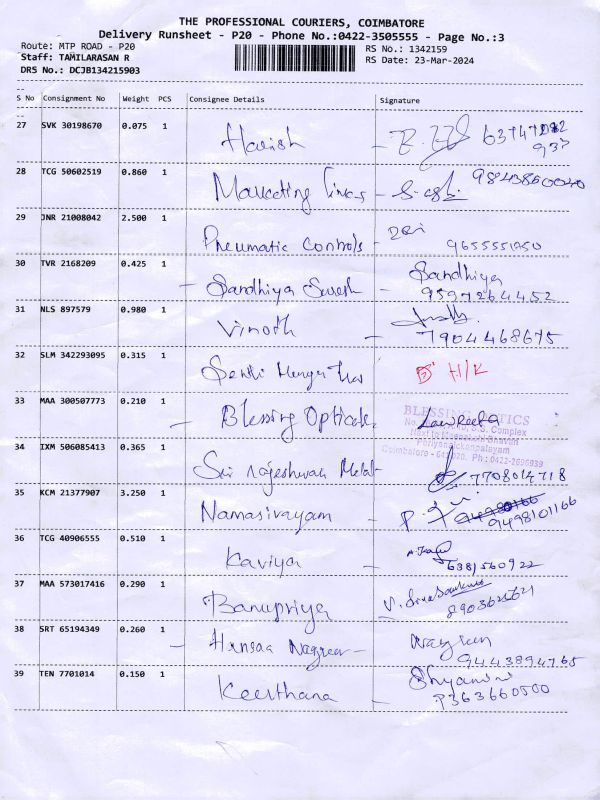 THE PROFESSIONAL COURIERS, COIMBATORE
Delivery Runsheet - P20 - Phone No.:0422-3505555 - Page No.:3
Route: MTP ROAD - P20
RS No.: 1342159
Staff: TAMILARASAN R
RS Date: 23-Mar-2024
DRS No.: DCJB134215903
S No Consignment No Weight PCS Consignee Details Signature
27 SVK 30198670 0.075 1 Harish
28 TCG 50602519 0.860 1 Marketing Times - 9843860040
29 JNR 21008042 2.500 1 Pneumatic Controls - 9655551250
30 TVR 2168209 0.425 1 - Sandhiya Suresh - Sandhiya
9597264452
31 NLS 897579 0.980 1 Vinoth - 7904468675
32 SLM 342293095 0.315 1 H/K
33 MAA 300507773 0.210 1 - Blessing Opticals
BLESSING OPTICS
Coimbatore - Ph: 0422-2696939
34 IXM 506085413 0.365 1 Sri Rajeshwari Metal - 7708014718
35 KCM 21377907 3.250 1 Namasivayam - 9498101166
36 TCG 40906555 0.510 1 Kaviya - 6381560922
37 MAA 573017416 0.290 1 Banupriya
38 SRT 65194349 0.260 1 - Nazreen - Nazreen
9443894765
39 TEN 7701014 0.150 1 Keerthana